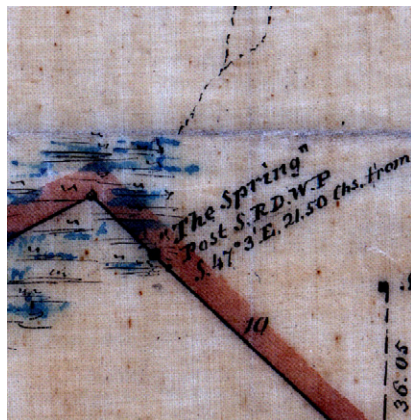 "The Spring"
Post S.R.D.W.P
S. 47° 3' E. 21.50 Chs. from
10
36.05